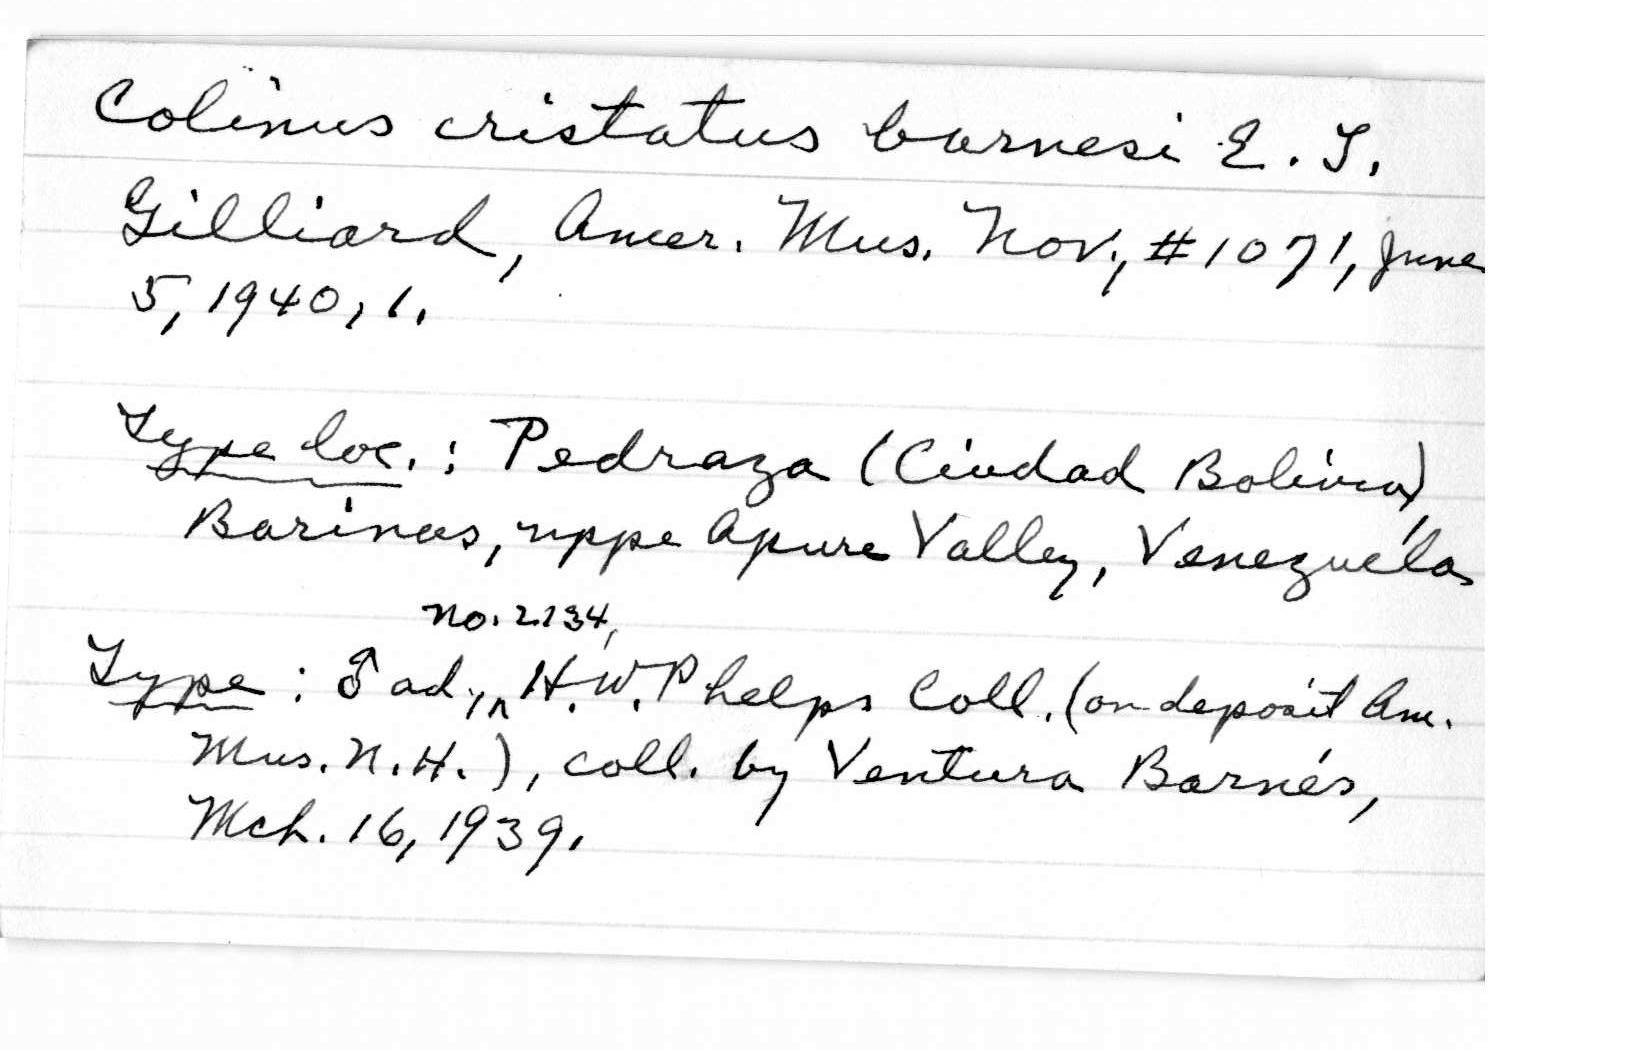 Colinus cristatus barnesi E. T.
Gilliard, Amer. Mus. Nov., #1071, June
5, 1940, 1.
Type loc.: Pedraza (Ciudad Bolivia),
Barinas, uppe Apure Valley, Venezuela
no. 2134,
Type: ♂ ad., ∧ H. W. Phelps Coll. (on deposit Am.
Mus. N. H.), coll. by Ventura Barnés,
Mch. 16, 1939.